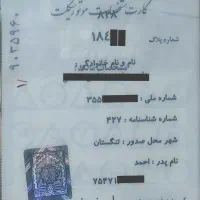 کارت مشخصات موتورسیکلت
۸۲۸
شماره پلاک ۱۸۴
نام و نام خانوادگی
شماره ملی : ۳۵۵
شماره شناسنامه : ۴۲۷
شهر محل صدور : تنگستان
نام پدر : احمد
۷۵۴۷۱
۹۰۳۵۹۶۰
۱/